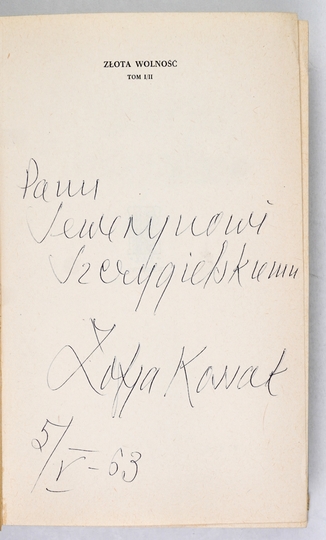 ZŁOTA WOLNOŚĆ
TOM I/II
Panu
Sewerynowi
Szczygielskiemu
Zofja Kossak
5/V-63